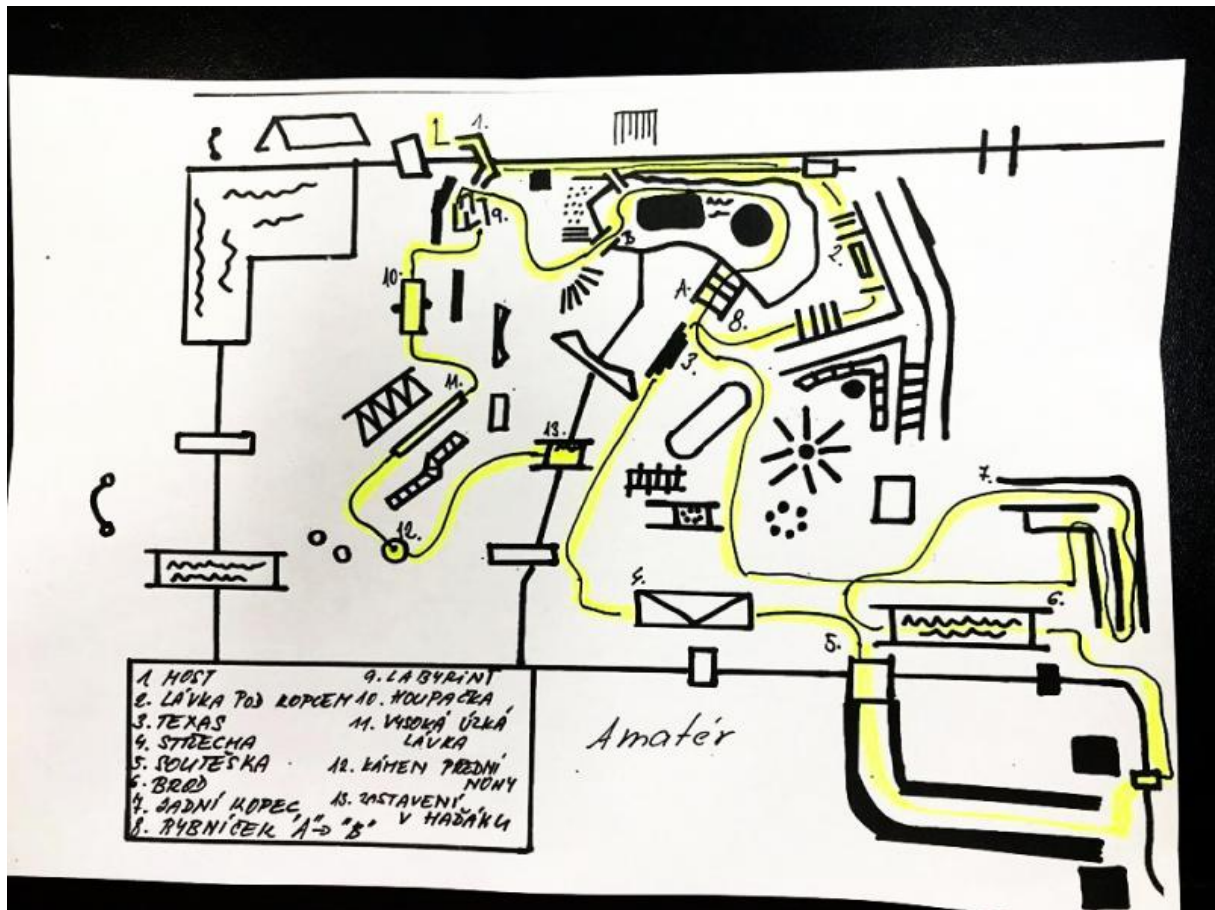 1.
9.
B
2.
A.
8.
10.
3.
11.
13.
7.
12.
4.
6.
5.
1 MOST
2. LÁVKA POD KOPCEM
3. TEXAS
4. STŘECHA
5. SOUTĚSKA
6. BROD
7. ZADNÍ KOPEC
8. RYBNÍČEK "A"→"B"
9. LABYRINT
10. HOUPAČKA
11. VYSOKÁ ÚZKÁ
LÁVKA
12. KÁMEN PŘEDNÍ
NOHY
13. ZASTAVENÍ
V HAĎÁKU
Amatér